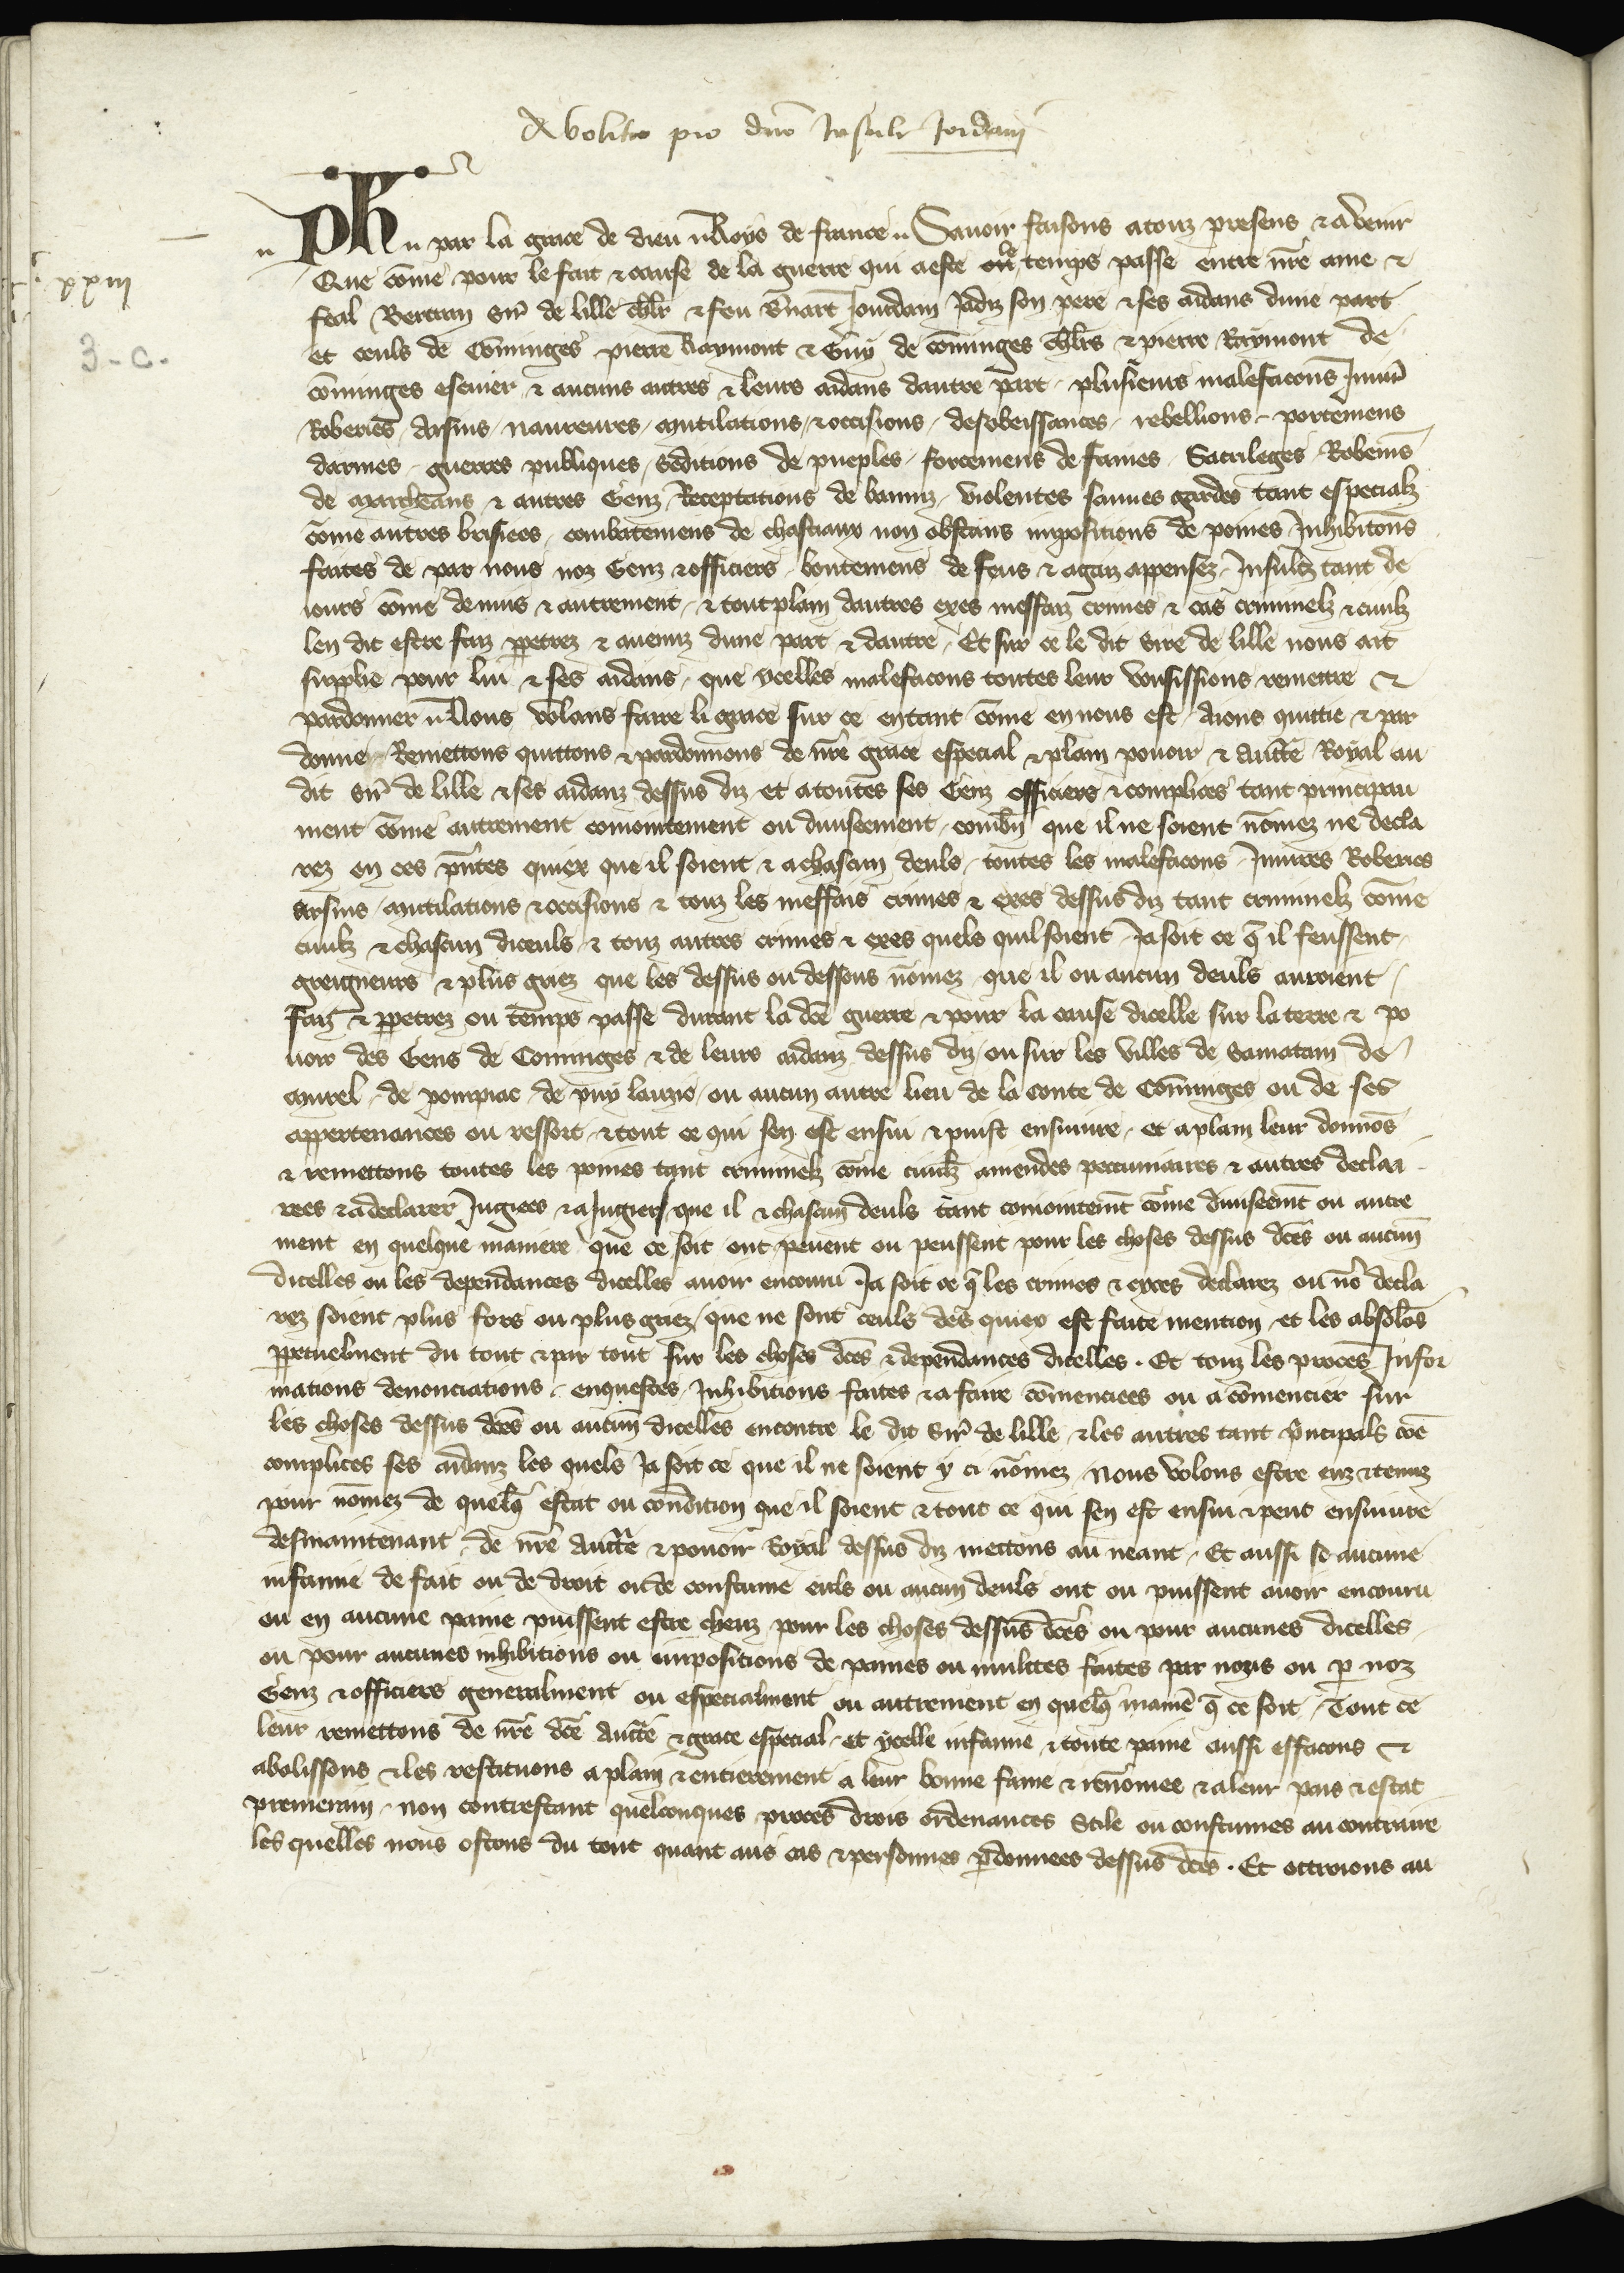 Abolitio pro dno Insule Jordani
xxiii
3 - c.
Ph par la grace de dieu Roys de france Savoir faisons a touz presens et advenir
Que come pour le fait et cause de la guerre qui a este ou temps passe entre nre ame et
feal Bertran sire de lille chlr et feu Bnart Jourdain Jadiz son pere et ses aidans dune part
et ceuls de Cominges pierre Raymont et Guy de cominges chlrs et pierre Raymont de
cominges escuier et aucuns autres et leurs aidans dautre part plusieurs malefacons Iniures
Roberies Arsins navreures mutilations et occisions desobeissances rebellions portemens
darmes guerres publiques seditions de pueples forcemens de fames Sacrileges Roberies
de marcheans et autres Genz Receptations de banniz violentes sauves gardes tant especialz
come autres brisiees combatemens de chasteaux non obstans impositions de poines Inhibitions
faites de par nous noz Genz et officiers boutemens de feus et agaiz appensez Insulz tant de
iours come de nuis et autrement et tout plain dautres exes meffaiz crimes et cas criminelz et civilz
len dit estre faiz ppetrez et avenuz dune part et dautre Et sur ce le dit Sire de lille nous ait
supplie pour lui et ses aidans que ycelles malefacons toutes leur vousissions remettre et
pardonner Nous volans faire li grace sur ce en tant come en nous est aions quittie et par
donne Remettons quittons et pardonnons de nre grace especial et plain povoir et aucte Royal au
dit Sire de lille et ses aidanz dessus diz et a toutes ses Genz officiers et complices tant principau
ment come autrement coniointement ou diviseement combn que il ne soient nomez ne decla
rez en ces pntes quiex que il soient et a chascun deuls toutes les malefacons Iniures Roberies
arsins mutilations et occisions et touz les meffais crimes et exes dessus diz tant criminelz come
civilz et chascun diceuls et touz autres crimes et exes quels quil soient Ja soit ce q il feussent
greigneurs et plus griez que les dessus ou dessous nomez que il ou aucun deuls auroient
faiz et ppetrez ou temps passe durant la dce guerre et pour la cause dicelle sur la terre et po
voir des Gens de Cominges et de leurs aidanz dessus diz ou sur les villes de Samatam de
murel de pompiac de puy lauzic ou aucun autre lieu de la conte de Cominges ou de ses
appertenances ou ressort et tout ce qui sen est ensui et puist ensuivre et a plain leur donnos
et remettons toutes les poines tant criminelz come civilz amendes peccuniaires et autres declai
rees et a declarer Jugiees et a Jugier que il et chascun deuls tant coniointemt come diviseemt ou autre
ment en quelque maniere que ce soit ont peuent ou peussent pour les choses dessus dces ou aucun
dicelles ou les dependances dicelles avoir encouru Ja soit ce q les crimes et exces declarez ou no decla
rez soient plus fors ou plus griez que ne sont ceuls des quiex est faite mention et les absolos
ppetuelment du tout et par tout sur les choses dces et dependances dicelles. Et touz les proces Infor
mations denonciations enquestes Inhibitions faites et a faire comenciees ou a comencier sur
les choses dessus dces ou aucun dicelles encontre le dit Sire de lille et les autres tant pncipals coe
complices ses aidanz les quels Ja soit ce que il ne soient y ci nomez nous volons estre euz et tenuz
pour nomez de quelq estat ou condition que il soient et tout ce qui sen est ensui et peut ensuivre
desmaintenant de nre aucte et povoir Royal dessus diz mettons au neant Et aussi se aucune
infamie de fait ou de droit ou de coustume euls ou aucun deuls ont ou puissent avoir encouru
ou en aucune paine puissent estre cheuz pour les choses dessus dces ou pour aucunes dicelles
ou pour aucunes inhibitions ou impositions de paines ou mulctes faites par nous ou p noz
Genz et officiers generalment ou especialment ou autrement en quelq manie q ce soit Tout ce
leur remettons de nre dce aucte et grace especial et ycelle infamie et toute paine aussi effacons et
abolissons et les restituons a plain et entierement a leur bonne fame et renomee et a leur pais et estat
premerain non contrestant quelconques proces drois ordenances Stile ou coustumes au contraire
les quelles nous ostons du tout quant aus cas et personnes pdonnees dessus dces. Et ottroions au